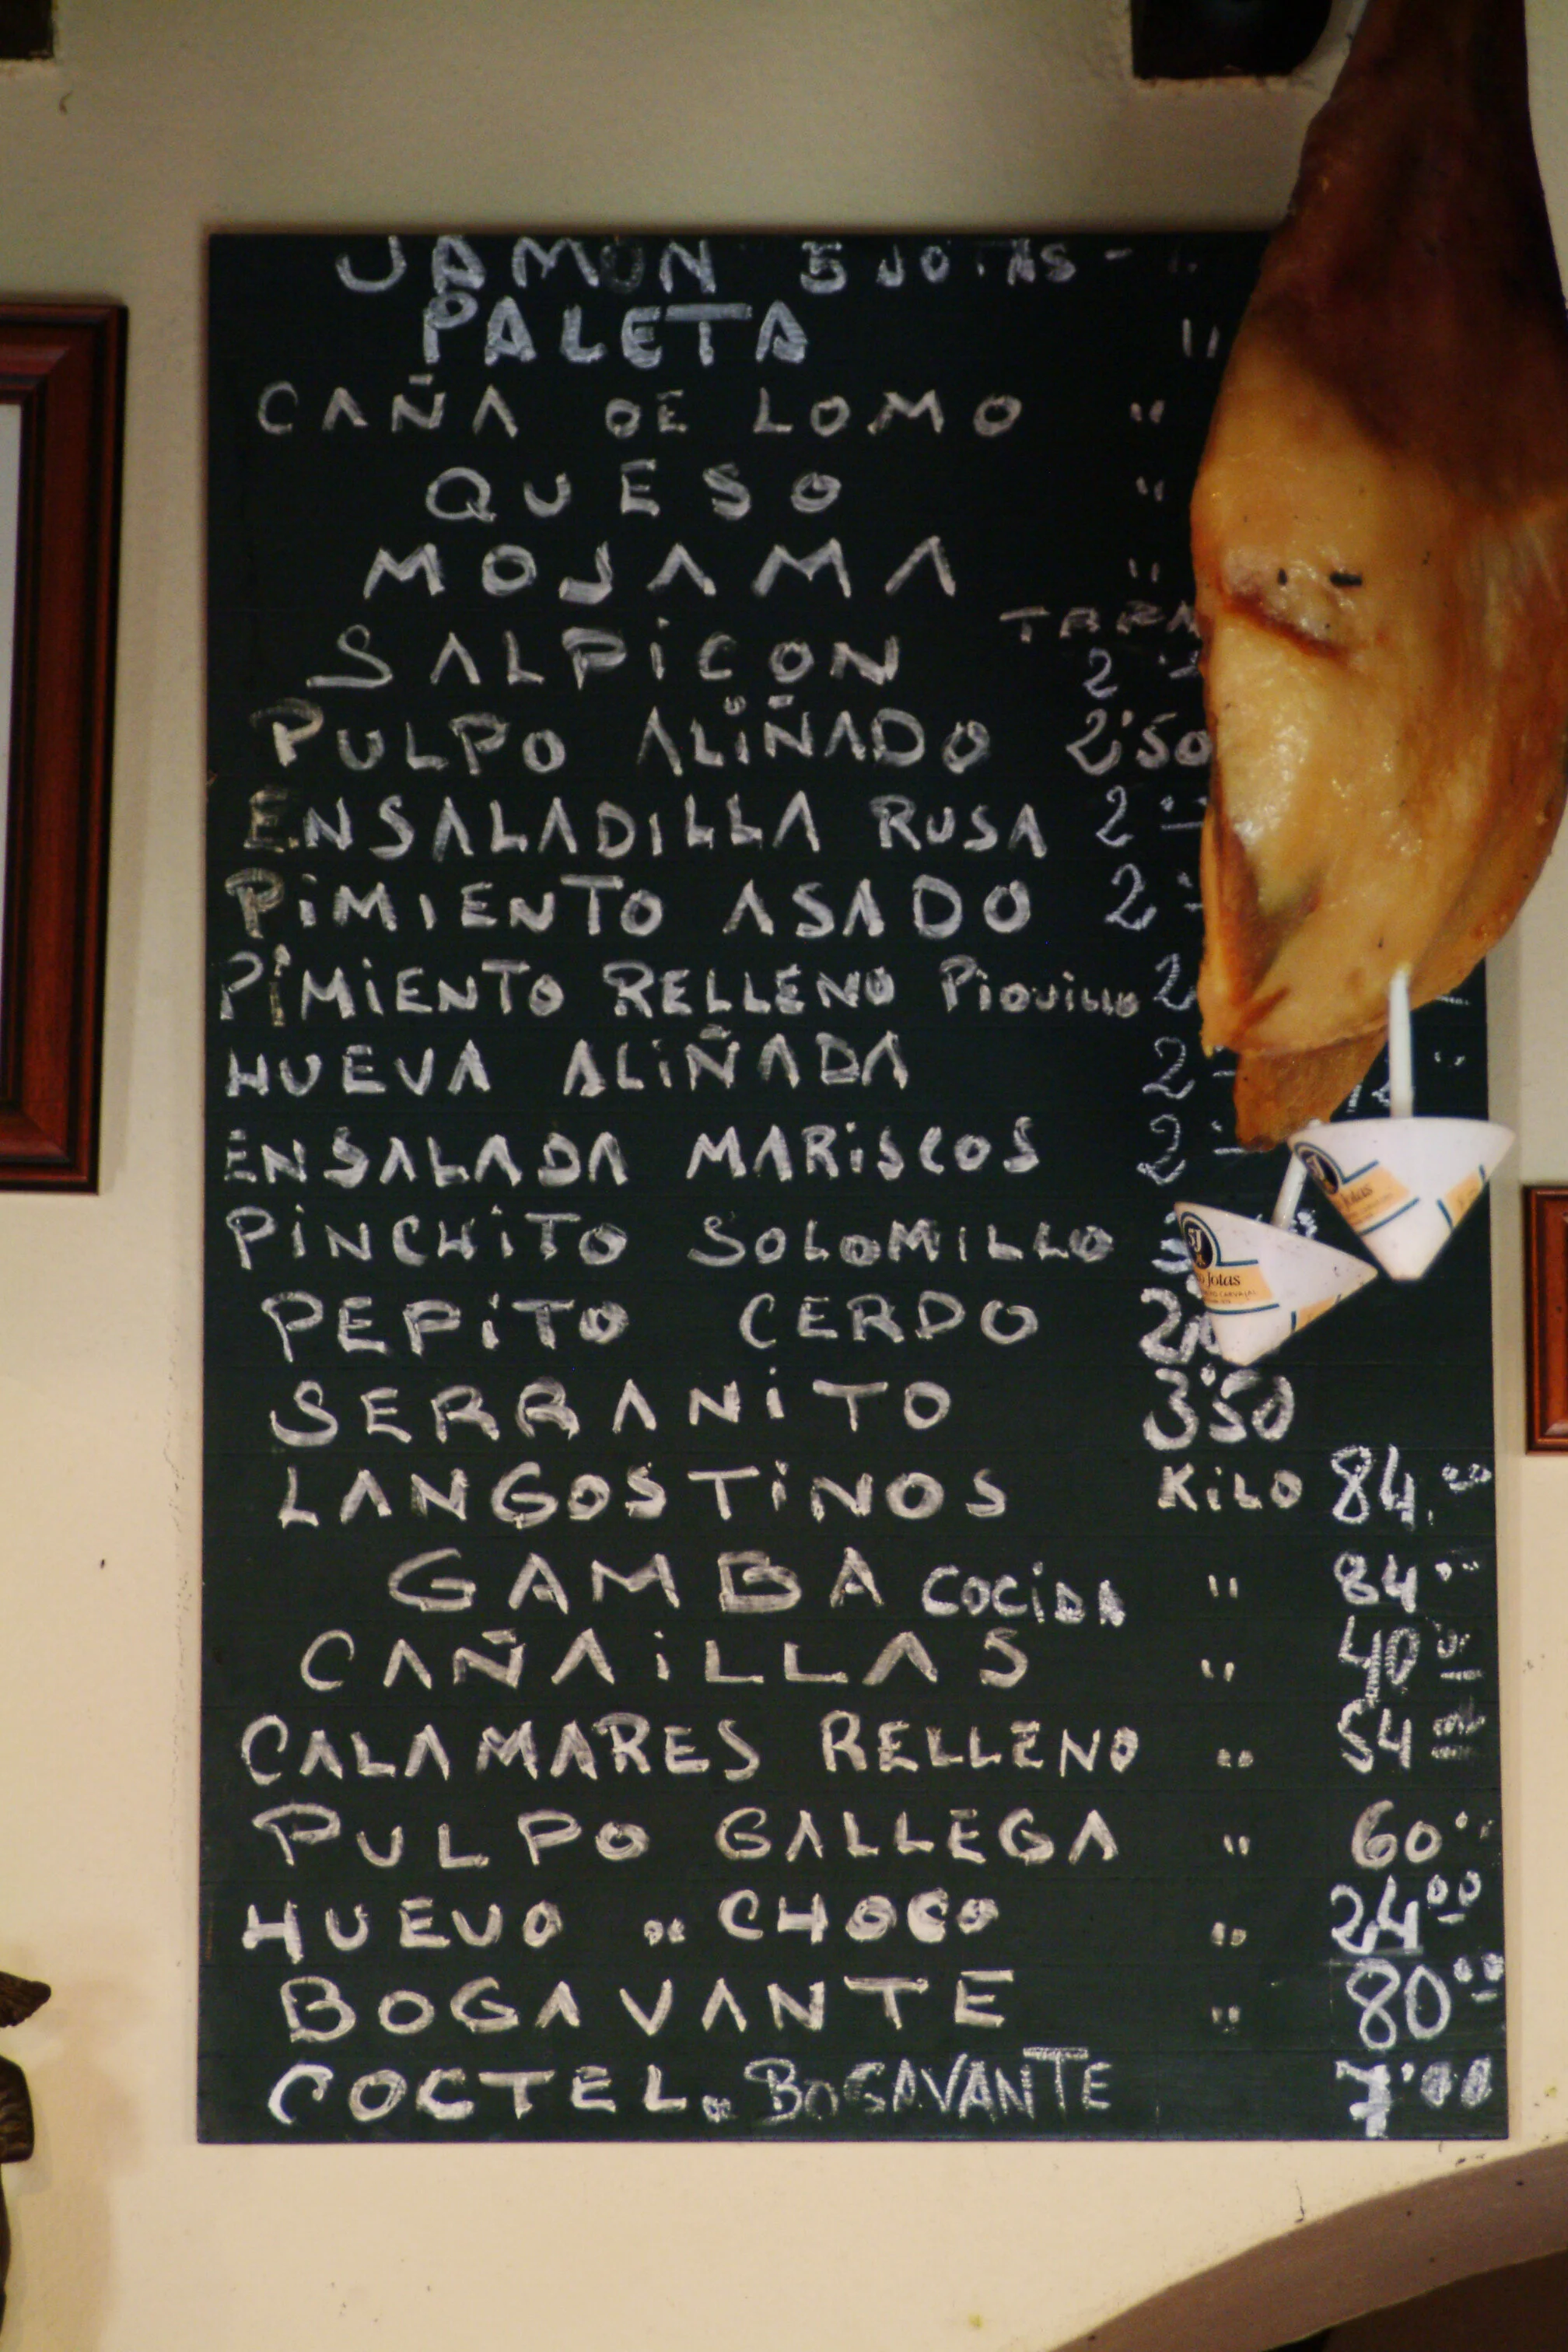 JAMON 5 JOTAS -
PALETA "
CAÑA DE LOMO "
QUESO "
MOJAMA "
SALPiCON 2
PULPO ALiÑADO 2'50
ENSALADILLA RUSA 2
PiMIENTO ASADO 2
PiMiENTO RELLENO PiQUiLLO 2
HUEVA ALiÑADA 2
ENSALADA MARiSCOS 2
PiNCHiTO SOLOMILLO
PEPiTO CERDO
SERRANiTO 3'50
LANGOSTiNOS KiLO 84.00
GAMBA COCiDA " 84
CAÑAiLLAS " 40
CALAMARES RELLENO " 54
PULPO GALLEGA " 60
HUEVO DE CHOCO " 24 00
BOGAVANTE " 80 00
COCTEL DE BOGAVANTE 7'00
5J
Jotas
Jotas